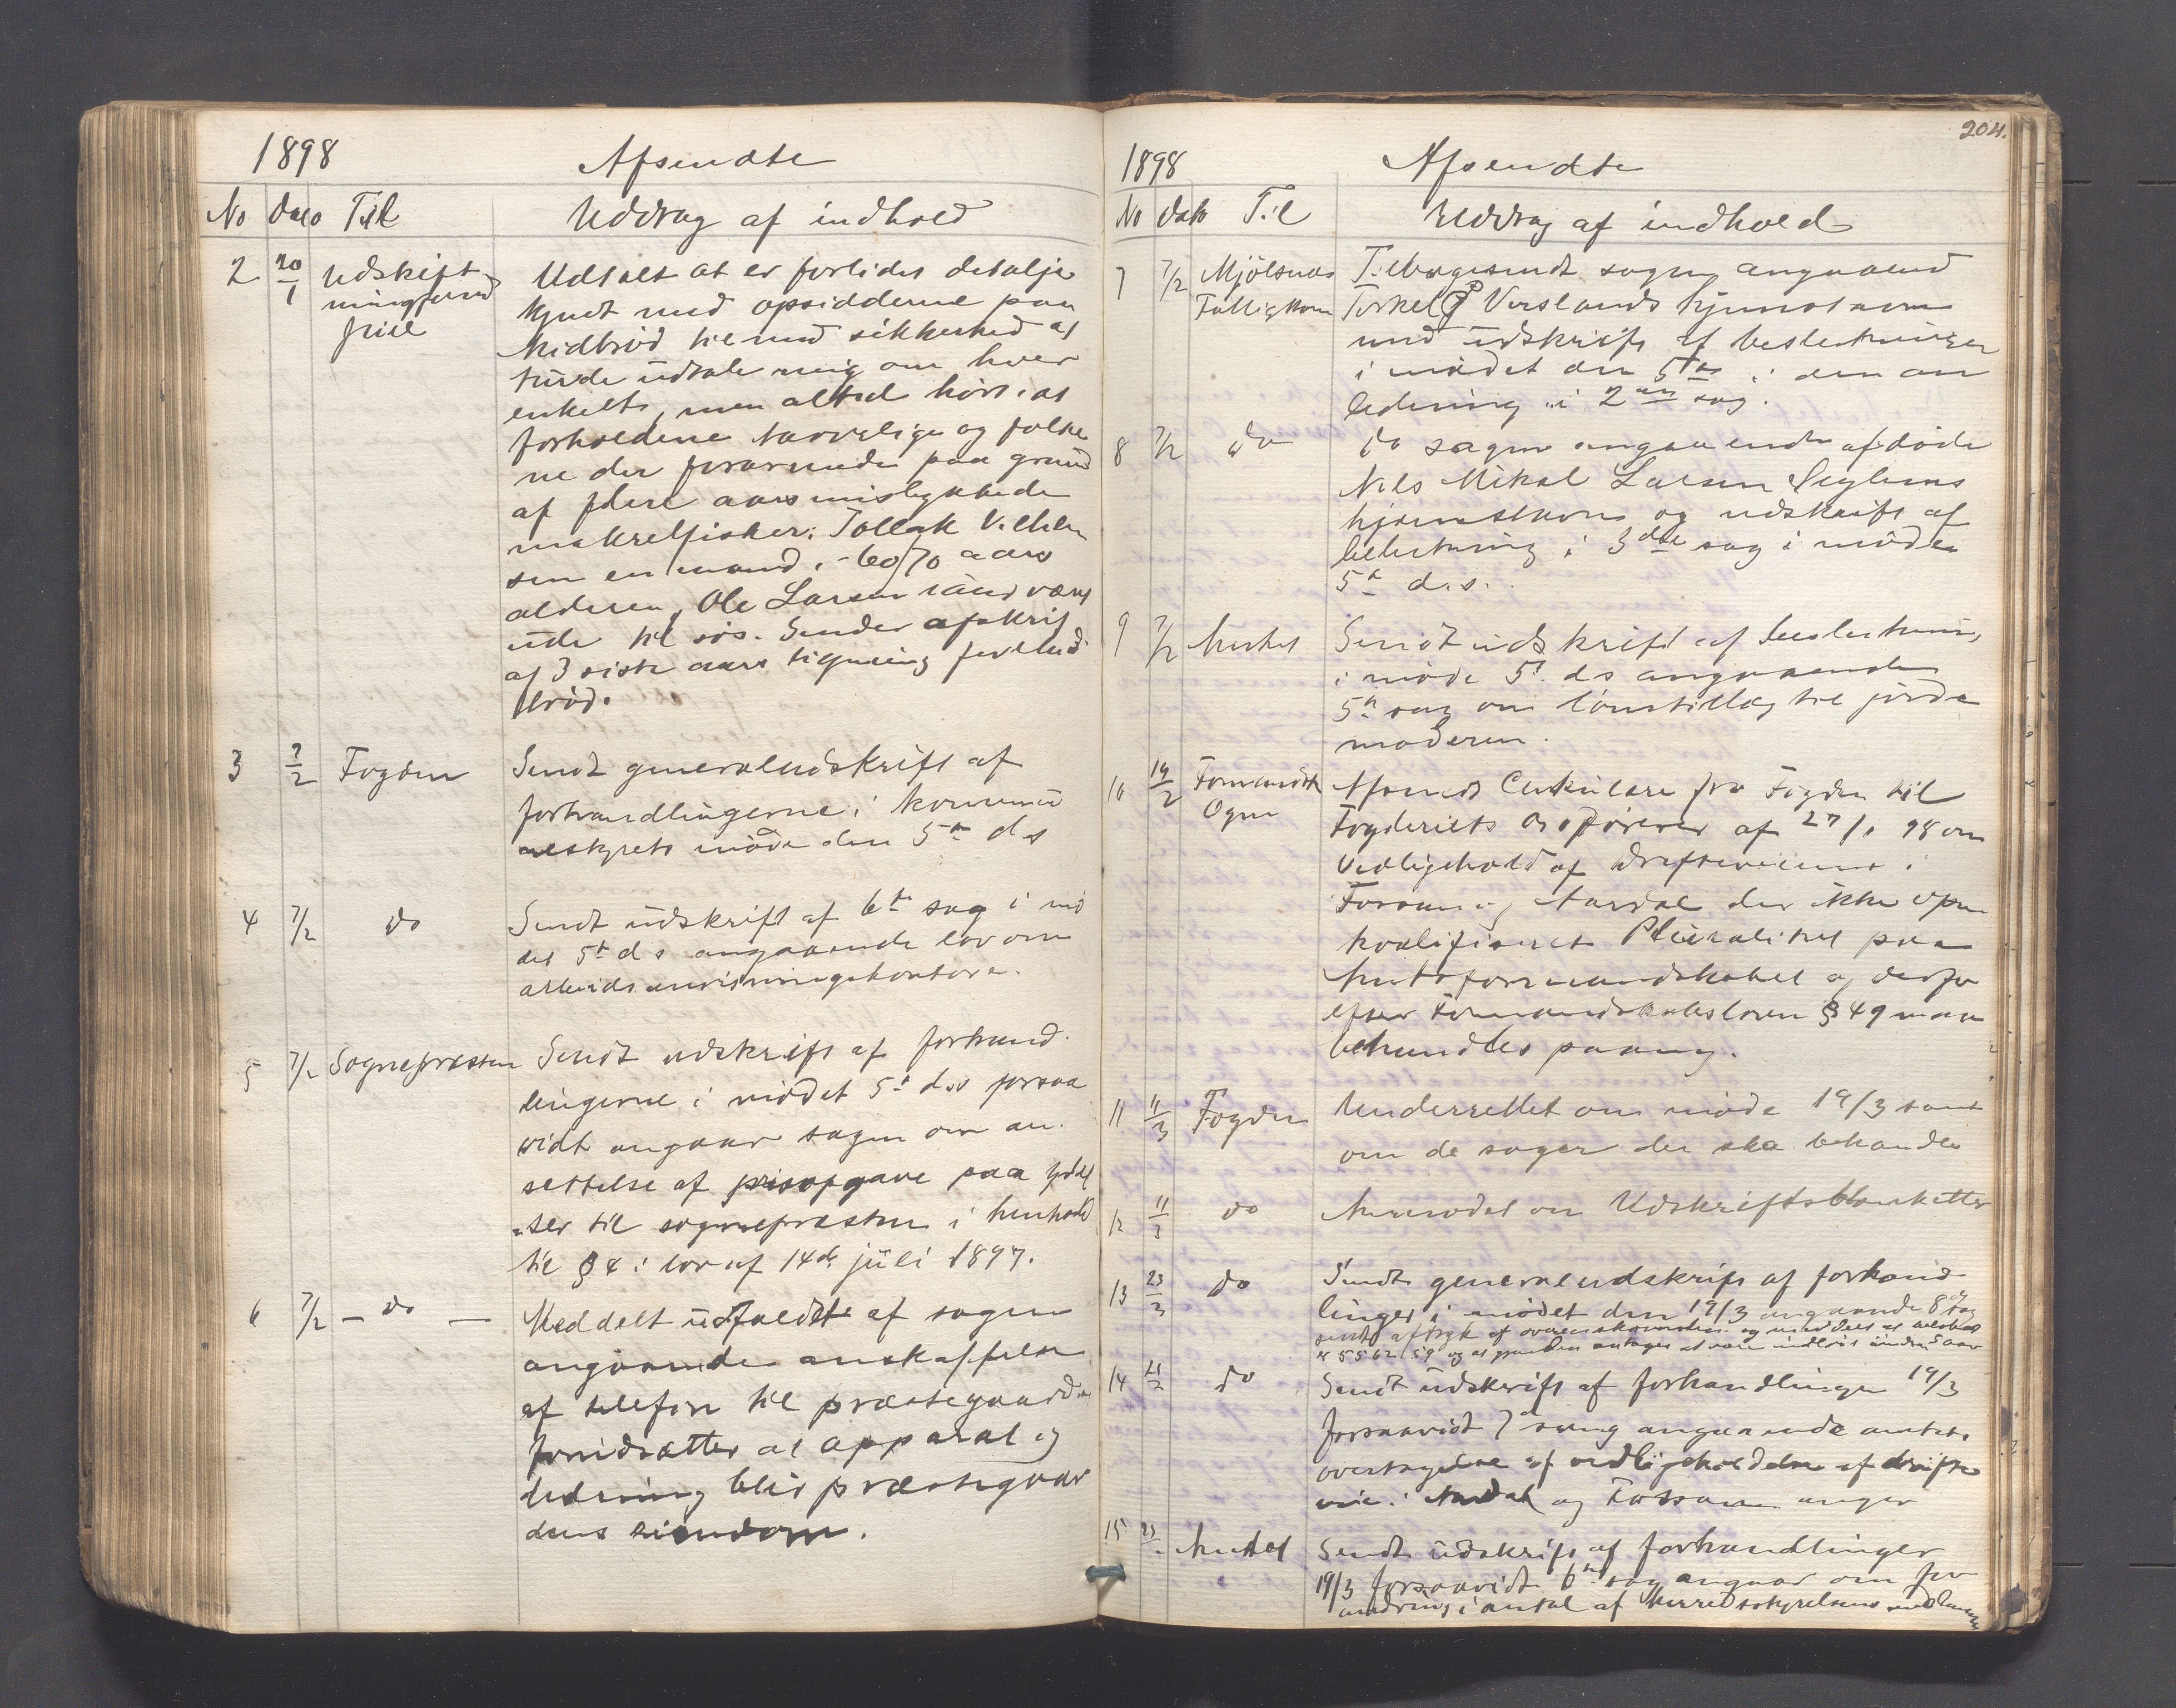 1898 Afsendte
No Dato Til Uddrag af indhold
2 20/1 Udskift
Udtalt at er forlidet detalje
kjendt med opsidderne paa
til med sikkerhed at
turde udtale mig om hver
enkelt, men altid hört at
forholdene og folke
ne der paa grund
af flere aars mislykkede
makrelfisker. Tollak Vilhelm
sen en mand i 60/70 aars
alderen, Ole Larsen
ude til sös. Sender afskrift
af 3 siste aars ligning
3 7/2 Fogden Sendt generaludskrift af
forhandlingerne i kommune
bestyrets möde den 5te ds
4 7/2 do Sendt udskrift af 6te sag i mö
det 5te ds angaaende lov om
arbeidsanvisningskontore.
5 7/2 Sognepræsten Sendt udskrift af forhand
lingerne i mödet 5te ds forsaa
vidt angaar sagen om an
settelse af prisopgave paa ydel
ser til sognepræsten i henhold
til § 4 i lov af 14de juli 1897.
6 7/2 - do - Meddelt udfaldet af sagen
angaaende anskaffelse
af telefon til præstegaarden
forudsætter at apparat og
ledning blir præstegaar
dens eiendom.
204.
1898 Afsendte
No Dato Til Uddrag af indhold
7 7/2 Mjölsnes Tilbagesendt sagen angaaende
Fattigkom Torkel Verslands hjemstavn
med udskrift af beslutningen
i mödet den 5te i den an
ledning i 2den sag.
8 7/2 do do sagen angaaende afdöde
Nils Mikal Larsen
hjemstavn og udskrift af
beslutning i 3die sag i möde
5te d.s.
9 7/2 Amtet Sendt udskrift af beslutning
i möde 5te ds angaaende
5te sag om lönstillæg til jorde
moderen.
10 14/2 Formændene Afsendt Cirkulære fra Fogden til
Ogne
Fogderiets Ordförere af 27/1 98 om
Vedligehold af Driftsveiene i
Fossan og Aardal der ikke opn
kvalificeret Pluralitet paa
Amtsformandskabet og derfor
efter Formandskabsloven § 49 maa
behandles paany.
11 11/3 Fogden Underrettet om möde 19/3 samt
om de sager der ska behandles
12 11/3 do Anmodet om Udskriftsblanketter
13 23/3 do Sendt generaludskrift af forhand
linger i mödet den 19/3 angaaende 8de sag
sendt aftryk af overenskomsten og meddelt at
14 23/3 do Sendt udskrift af forhandlinger 19/3
forsaavidt 7de sag angaaende amtets
overtagelse af vedligeholdelse af drifts
veie i Aardal og Fossan angar
15 23/ Amtet Sendt udskrift af forhandlinger
19/3 forsaavidt 6te sag angaar om for
andring i antal af Herredsstyrelsens medlemmer